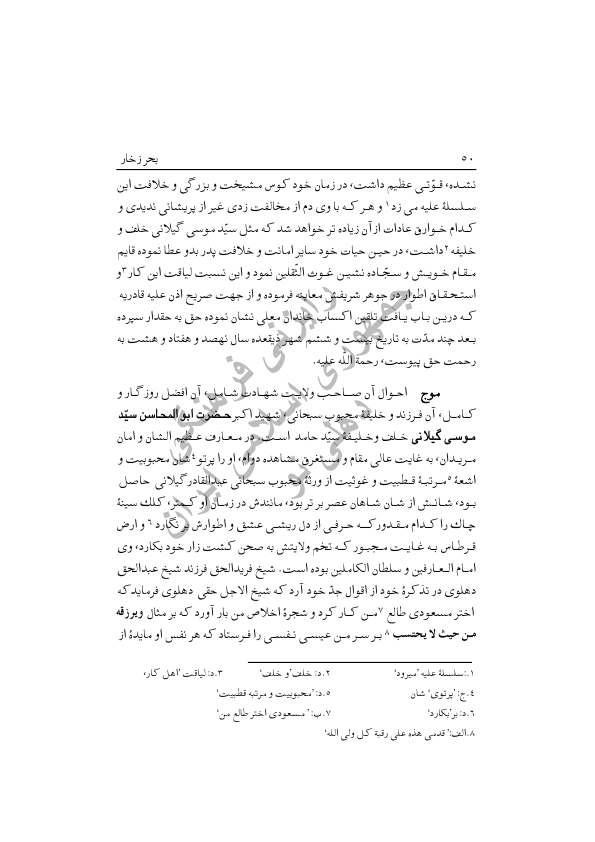 ۵۰ بحر زخار
نشده، قوّتی عظیم داشت، در زمان خود کوس مشیخت و بزرگی و خلافت این
سلسلهٔ علیه می زد۱ و هر که با وی دم از مخالفت زدی غیر از پریشانی ندیدی و
کدام خوارق عادات از آن زیاده تر خواهد شد که مثل سیّد موسی گیلانی خلف و
خلیفه۲ داشت، در حین حیات خود سایر امانت و خلافت پدر بدو عطا نموده قایم
مقام خویش و سجّاده نشین غوث الثّقلین نمود و این نسبت لیاقت این کار۳ و
استحقاق اطوار در جوهر شریفش معاینه فرموده و از جهت صریح اذن علیه قادریه
که درین باب یافت تلقین اکساب خاندان معلی نشان نموده حق به حقدار سپرده
بعد چند مدّت به تاریخ بیست و ششم شهر ذیقعده سال نهصد و هفتاد و هشت به
رحمت حق پیوست، رحمة اللّه علیه.
موج احوال آن صاحب ولایت شهادت شامل، آن افضل روزگار و
کامل، آن فرزند و خلیفهٔ محبوب سبحانی، شهید اکبر حضرت ابو المحاسن سیّد
موسی گیلانی خلف و خلیفهٔ سیّد حامد است. در معارف عظیم الشان و امان
مریدان، به غایت عالی مقام و مستغرق مشاهده دوام، او را پرتو۴ شان محبوبیت و
اشعهٔ۵ مرتبهٔ قطبیت و غوثیت از ورثهٔ محبوب سبحانی عبدالقادر گیلانی حاصل
بود، شانش از شان شاهان عصر بر تر بود، مانندش در زمان او کمتر، کلك سینهٔ
چاك را کدام مقدور که حرفی از دل ریشی عشق و اطوارش بر نگارد۶ و ارض
قرطاس به غایت مجبور که تخم ولایتش به صحن کشت زار خود بکارد، وی
امام العارفین و سلطان الکاملین بوده است. شیخ فریدالحق فرزند شیخ عبدالحق
دهلوی در تذکرهٔ خود از اقوال جدّ خود آرد که شیخ الاجل حقی دهلوی فرماید که
اختر مسعودی طالع۷ من کار کرد و شجرهٔ اخلاص من بار آورد که بر مثال ویرزقه
من حیث لا یحتسب۸ بر سر من عیسی نفسی را فرستاد که هر نفس او مایدهٔ از
۱.:سلسلهٔ علیه ’میرود‘ ۲.د: خلف ’و خلف‘ ۳.د: لیاقت ’اهل کار‘
۴.ج: ’پرتوی‘ شان ۵.د: ’محبوبیت و مرتبه قطبیت‘
۶.د: بر’بکارد‘ ۷.ب: ’مسعودی اختر طالع من‘
۸.الف: ’قدمی هذه علی رقبة کل ولی الله‘
جمهوری اسلامی ایران
رایزنی فرهنگی
دهلی نو